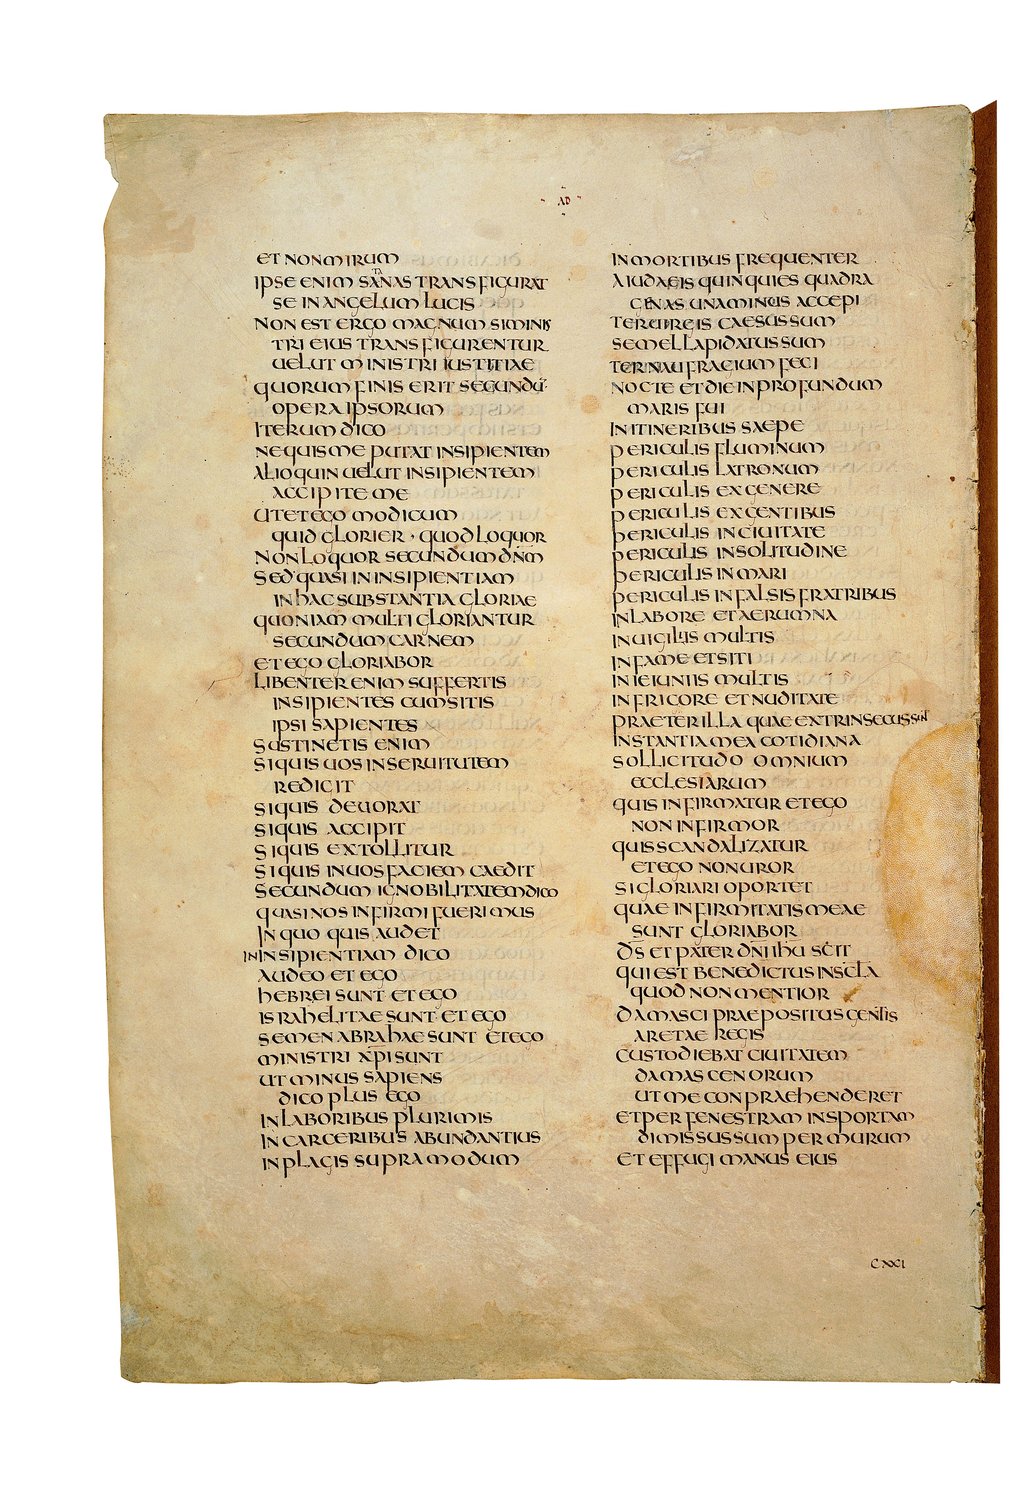 AD
ET NON MIRUM
IPSE ENIM SATANAS TRANSFIGURAT
SE IN ANGELUM LUCIS
NON EST ERGO MAGNUM SI MINIS
TRI EIUS TRANSFIGURENTUR
UELUT MINISTRI IUSTITIAE
QUORUM FINIS ERIT SECUNDU
OPERA IPSORUM
ITERUM DICO
NE QUIS ME PUTAT INSIPIENTEM
ALIOQUIN UELUT INSIPIENTEM
ACCIPITE ME
UT ET EGO MODICUM
QUID GLORIER · QUOD LOQUOR
NON LOQUOR SECUNDUM DNM
SED QUASI IN INSIPIENTIAM
IN HAC SUBSTANTIA GLORIAE
QUONIAM MULTI GLORIANTUR
SECUNDUM CARNEM
ET EGO GLORIABOR
LIBENTER ENIM SUFFERTIS
INSIPIENTES CUM SITIS
IPSI SAPIENTES
SUSTINETIS ENIM
SI QUIS UOS IN SERUITUTEM
REDIGIT
SI QUIS DEUORAT
SI QUIS ACCIPIT
SI QUIS EXTOLLITUR
SI QUIS IN UOS FACIEM CAEDIT
SECUNDUM IGNOBILITATEM DICO
QUASI NOS INFIRMI FUERIMUS
IN QUO QUIS AUDET
IN INSIPIENTIAM DICO
AUDEO ET EGO
HEBREI SUNT ET EGO
ISRAHELITAE SUNT ET EGO
SEMEN ABRAHAE SUNT ET EGO
MINISTRI XPI SUNT
UT MINUS SAPIENS
DICO PLUS EGO
IN LABORIBUS PLURIMIS
IN CARCERIBUS ABUNDANTIUS
IN PLAGIS SUPRA MODUM
IN MORTIBUS FREQUENTER
A IUDAEIS QUINQUIES QUADRA
GENAS UNA MINUS ACCEPI
TER UIRGIS CAESUS SUM
SEMEL LAPIDATUS SUM
TER NAUFRAGIUM FECI
NOCTE ET DIE IN PROFUNDUM
MARIS FUI
IN ITINERIBUS SAEPE
PERICULIS FLUMINUM
PERICULIS LATRONUM
PERICULIS EX GENERE
PERICULIS EX GENTIBUS
PERICULIS IN CIUITATE
PERICULIS IN SOLITUDINE
PERICULIS IN MARI
PERICULIS IN FALSIS FRATRIBUS
IN LABORE ET AERUMNA
IN UIGILIIS MULTIS
IN FAME ET SITI
IN IEIUNIIS MULTIS
IN FRIGORE ET NUDITATE
PRAETER ILLA QUAE EXTRINSECUS SUNT
INSTANTIA MEA COTIDIANA
SOLLICITUDO OMNIUM
ECCLESIARUM
QUIS INFIRMATUR ET EGO
NON INFIRMOR
QUIS SCANDALIZATUR
ET EGO NON UROR
SI GLORIARI OPORTET
QUAE INFIRMITATIS MEAE
SUNT GLORIABOR
DS ET PATER DNI IHU SCIT
QUI EST BENEDICTUS IN SCLA
QUOD NON MENTIOR
DAMASCI PRAEPOSITUS GENTIS
ARETAE REGIS
CUSTODIEBAT CIUITATEM
DAMASCENORUM
UT ME CONPRAEHENDERET
ET PER FENESTRAM IN SPORTAM
DIMISSUS SUM PER MURUM
ET EFFUGI MANUS EIUS
CXXI